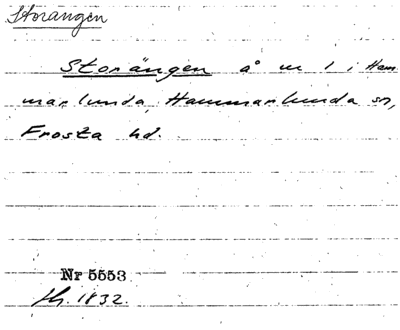 Storängen
Storängen å n 1 i Ham
marlunda, Hammarlunda sn,
Frosta hd.
Nr 5553
1832.